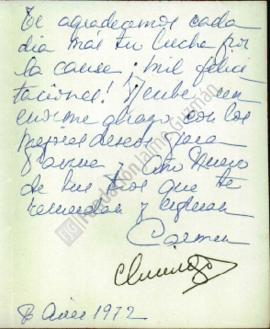 Te agradecemos cada
día más tu lucha por
la causa ¡mil felici
taciones! Recibe un
enorme abrazo con los
mejores deseos para
y Año Nuevo
de los que te
recuerdan y
Carmen
B Aires 1972